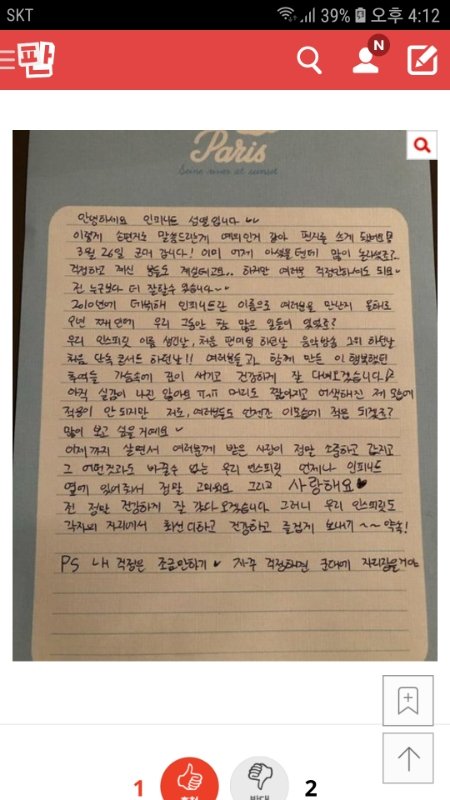 SKT 39% 오후 4:12
판 N
Paris
Seine river at sunset
안녕하세요 인피니트 성열입니다 ^^
이렇게 손편지로 말씀드리는게 예의인거 같아 편지를 쓰게 되었어요
3월 26일 군대 갑니다! 이미 어제 아셨을텐데 많이 놀라셨죠?
걱정하고 계신 분들도 계실테고요.. 하지만 여러분 걱정안하셔도 되요~
전 누구보다 더 잘할수 있습니다~
2010년에 데뷔해 인피니트란 이름으로 여러분을 만난지 올해로
9년 째인데 우리 그동안 참 많은 일들이 있었죠?
우리 인스피릿 이름 생긴날, 처음 팬미팅 하던날 음악방송 1위 하던날
처음 단독콘서트 하던날!! 여러분들과 함께 만든 이 행복했던
추억들 가슴속에 깊이 새기고 건강하게 잘 다녀오겠습니다
아직 실감이 나진 않아요 ㅠㅠ 머리도 짧아지고 어색해진 제 모습에
적응이 안 되지만 저도, 여러분들도 언젠간 이모습에 적응 되겠죠?
많이 보고 싶을거예요
이제까지 살면서 여러분께 받은 사랑이 정말 소중하고 값지고
그 어떤것과도 바꿀수 없는 우리 인스피릿 언제나 인피니트
옆에 있어줘서 정말 고마워요 그리고 사랑해요♥
전 정말 건강하게 잘 갔다오겠습니다 그러니 우리 인스피릿도
각자의 자리에서 최선 다하고 건강하고 즐겁게 보내기~~ 약속!
PS 내 걱정은 조금만하기♥ 자주 걱정하면 군대에 자리잡을거야
1 2